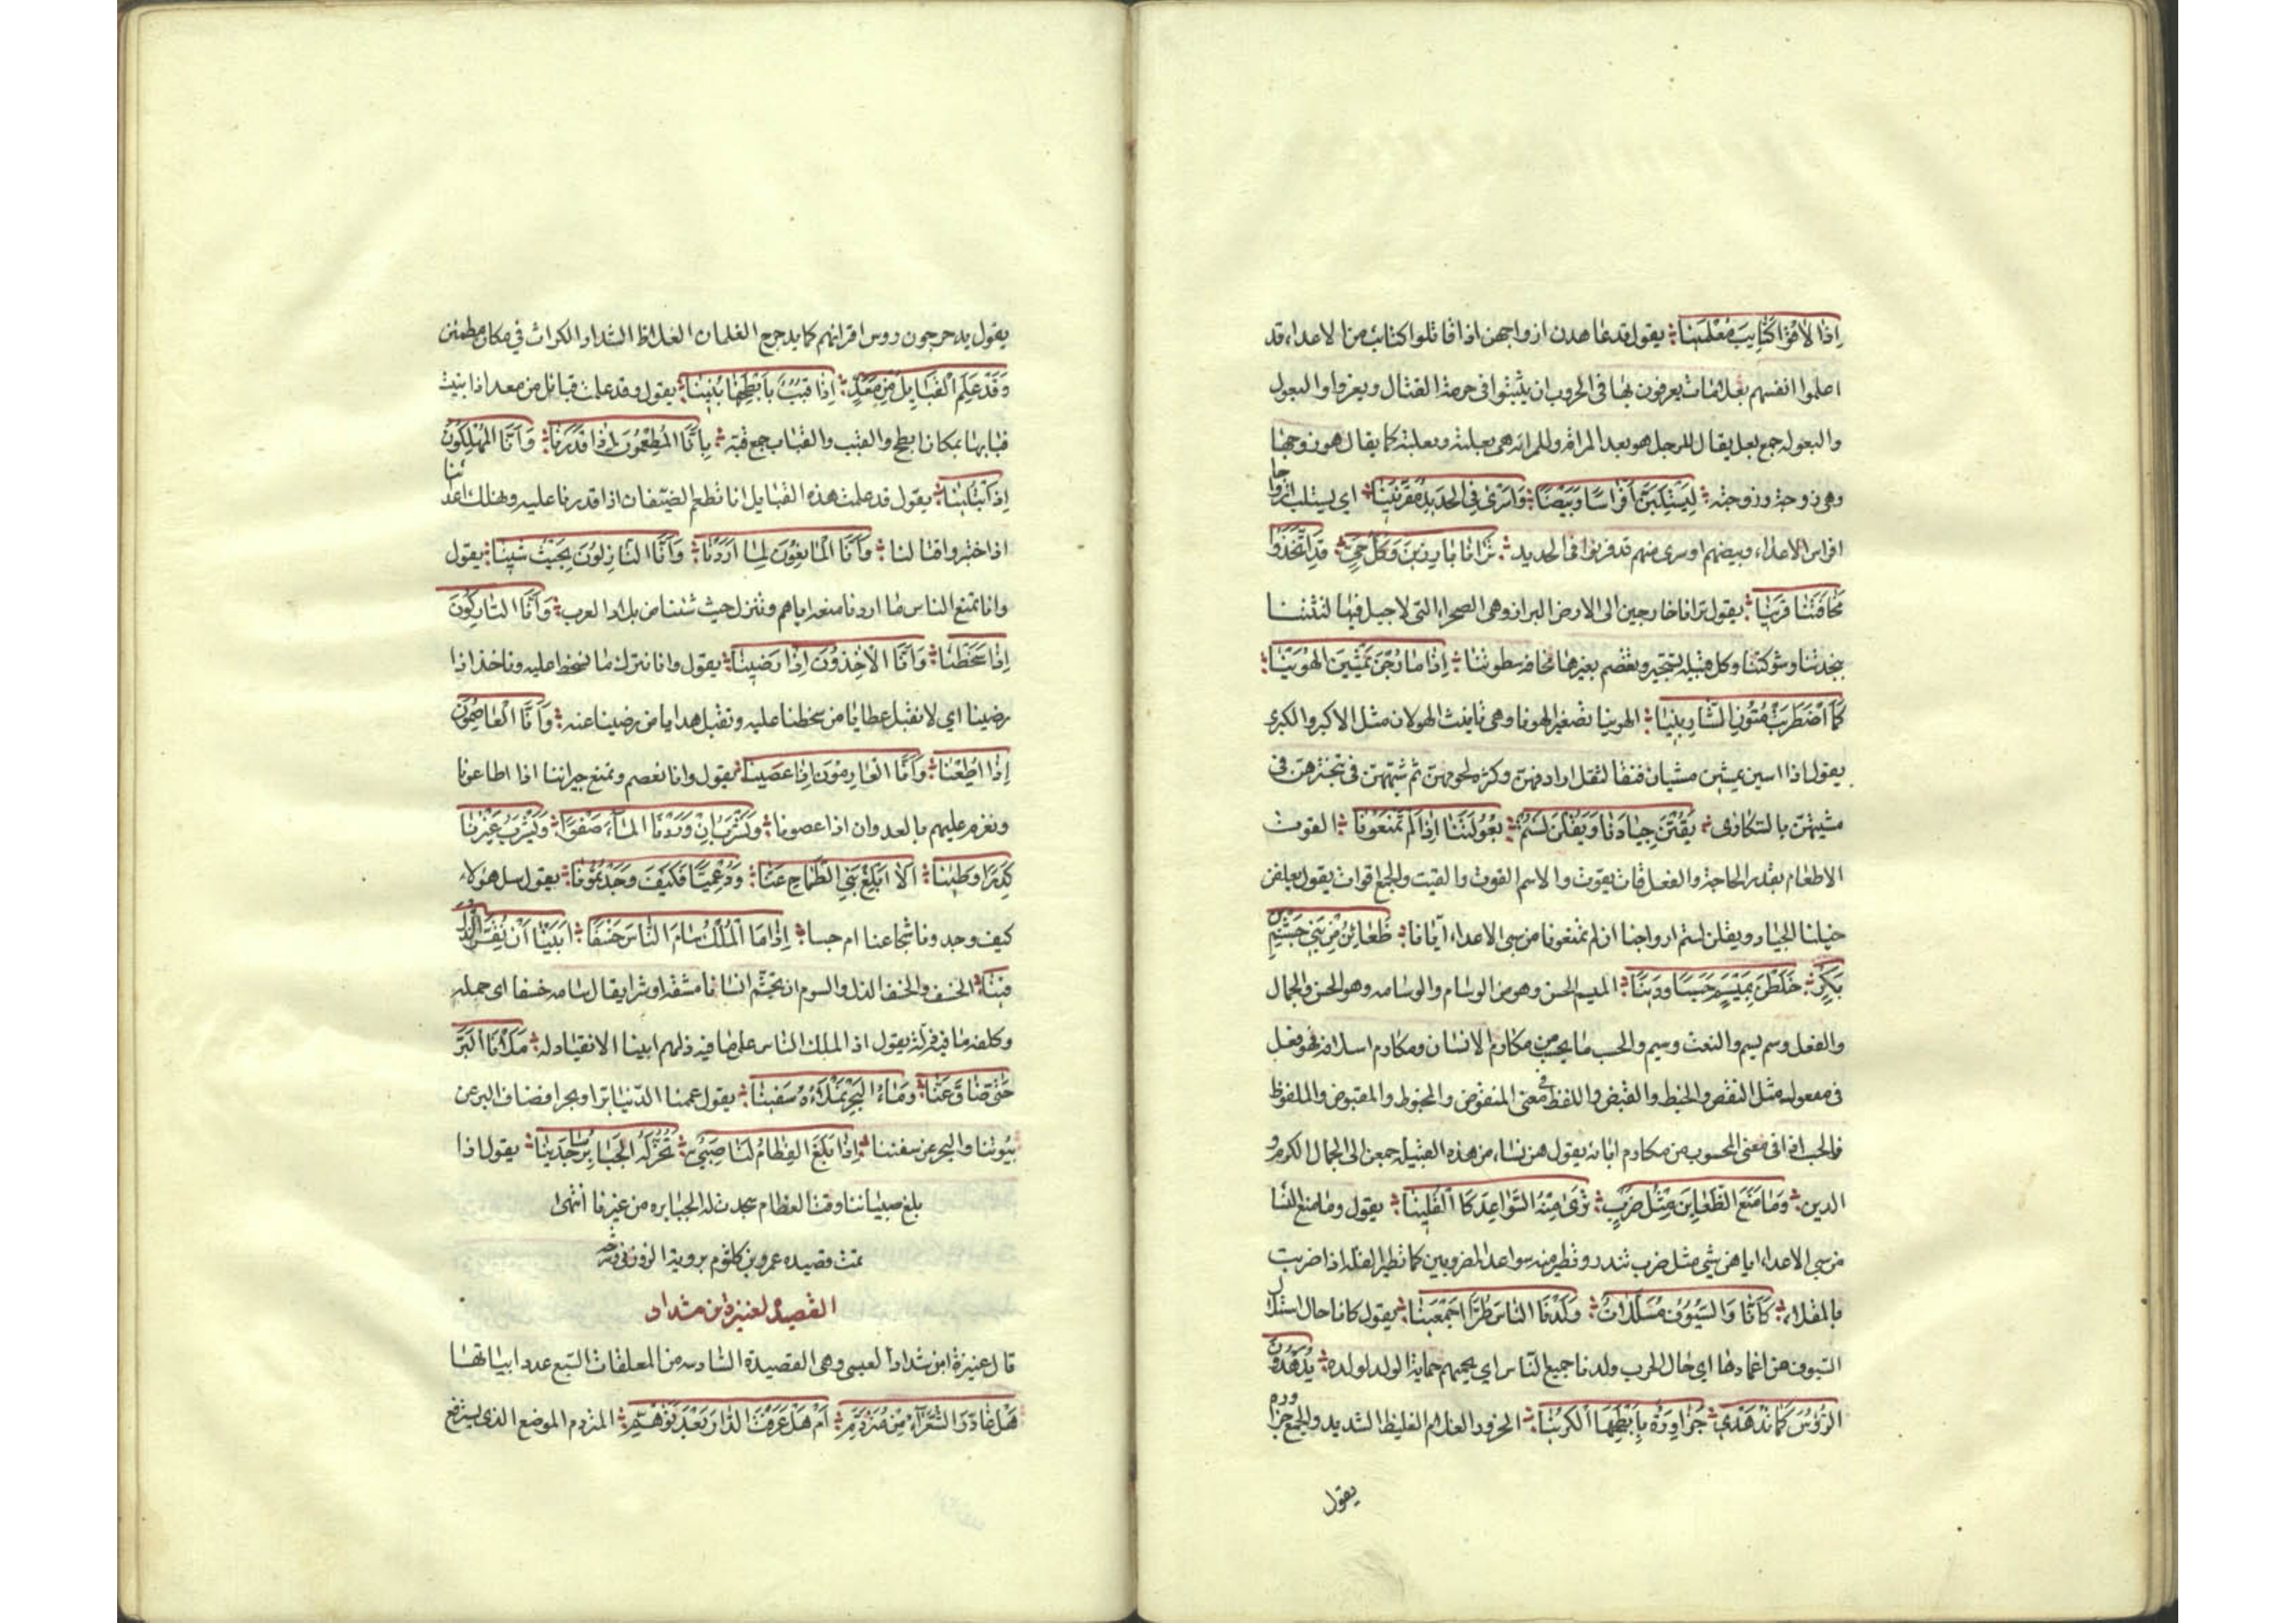 إِذَا لَاقَوْا كَتَائِبَ مُعْلَمِينَا يقول قد عاهدن ازواجهن اذا قاتلوا كتائب من الاعداء قد
اعلموا انفسهم بعلامات يعرفون بها فى الحروب ان يثبتوا فى حومة القتال ويعزوا والبعول
والبعوله جمع بعل يقال للرجل هو بعل المراة وللمراة هى بعلته وبعلته كما يقال هو زوجها
وهى زوجه وزوجته لِيَسْتَلِبَنَّ أَفْرَاسًا وَبِيضًا وَأَسْرَى فِي الحَدِيدِ مُقَرَّنِينَا اي ليستلب ازواجنا
افراس الاعداء وبيضهم واسرى منهم قد قرنوا فى الحديد تَرَانَا بَارِزِينَ وَكُلُّ حَيٍّ قَدِ اتَّخَذُوا
مَخَافَتَنَا قَرِينَا يقول ترانا خارجين الى الارض البراز وهى الصحراء التى لا جبل فيها لثقتنا
بنجدتنا وشوكتنا وكل قبيله تستجير وتعتصم بغيرها مخافه سطوتنا إِذَا مَا رُحْنَ يَمْشِينَ الهُوَيْنَا
كَمَا اضْطَرَبَتْ مُتُونُ الشَّارِبِينَا الهوينا تصغير الهونا وهى تانيث الهون مثل الاكبر والكبرى
يقول اذا مشين يمشين مشيا رفيقا لثقل اردافهن وكثرة لحومهن ثم شبههن فى تبخترهن فى
مشيهن بالسكارى يَقُتْنَ جِيَادَنَا وَيَقُلْنَ لَسْتُمْ بُعُولَتَنَا إِذَا لَمْ تَمْنَعُونَا القوت
الاطعام بقدر الحاجة والفعل قات يقوت والاسم القوت والقيت والجمع اقوات يقول يعلفن
خيلنا الجياد ويقلن لستم ازواجنا ان لم تمنعونا من سبى الاعداء ايانا ظَعَائِنُ مِنْ بَنِي جُشَمِ بْنِ
بَكْرٍ خَلَطْنَ بِمِيسَمٍ حَسَبًا وَدِينَا الميسم الحسن وهو من الوسام والوسامه وهو الحسن والجمال
والفعل وسم يسم والنعت وسيم والحسب ما يحسب من مكارم الانسان ومكارم اسلافه فهو فعل
فى معنى مفعول مثل النفض والخبط والقبض واللفظ فى معنى المنفوض والمخبوط والمقبوض والملفوظ
فالحسب اذا فى معنى المحسوب من مكارم ابائه يقول هن نساء من هذه القبيله جمعن الى الجمال الكرم و
الدين وَمَا مَنَعَ الظَّعَائِنَ مِثْلُ ضَرْبٍ تَرَى مِنْهُ السَّوَاعِدَ كَالقُلِينَا يقول وما منع النسا
من سبى الاعداء اياهن شيء مثل ضرب تندر وتطير منه سواعد المضروبين كما تطير القلة اذا ضربت
بالمقلاء كَأَنَّا وَالسُّيُوفُ مُسَلَّلَاتٌ وَلَدْنَا النَّاسَ طُرًّا أَجْمَعِينَا يقول كانا حال استلال
السيوف من اغمادها اي حال الحرب ولدنا جميع الناس اي نحميهم حماية الوالد لولده يُدَهْدُونَ
الرُّؤُسَ كَمَا تُدَهْدِي حَزَاوِرَةٌ بِأَبْطَحِهَا الكُرِينَا الحزور الغلام الغليظ الشديد والجمع حزاوره
يقول
يقول يدحرجون روس اقرانهم كما يدحرج الغلمان الغلاظ الشداد الكرات في مكان مطمئن
وَقَدْ عَلِمَ القَبَائِلُ مِنْ مَعَدٍّ إِذَا قُبَبٌ بِأَبْطَحِهَا بُنِينَا يقول وقد علمت قبائل من معد اذا بنيت
قبابها بمكان ابطح والقبب والقباب جمع قبة بِأَنَّا المُطْعِمُونَ إِذَا قَدَرْنَا وَأَنَّا المُهْلِكُونَ
إِذَا ابْتُلِينَا يقول قد علمت هذه القبايل انا نطعم الضيفان اذا قدرنا عليه ونهلك اعدائنا
اذا اختبروا قتالنا وَأَنَّا المَانِعُونَ لِمَا أَرَدْنَا وَأَنَّا النَّازِلُونَ بِحَيْثُ شِينَا يقول
وانا نمنع الناس ما اردنا منعه اياهم وننزل حيث شئنا من بلاد العرب وَأَنَّا التَّارِكُونَ
إِذَا سَخِطْنَا وَأَنَّا الآخِذُونَ إِذَا رَضِينَا يقول وانا نترك ما نسخط عليه وناخذ اذا
رضينا اي لا نقبل عطايا من سخطنا عليه ونقبل هدايا من رضينا عنه وَأَنَّا العَاصِمُونَ
إِذَا أُطِعْنَا وَأَنَّا العَارِمُونَ إِذَا عُصِينَا يقول وانا نعصم ونمنع جيراننا اذا اطاعونا
ونعرم عليهم بالعدوان اذا عصونا وَنَشْرَبُ إِنْ وَرَدْنَا المَاءَ صَفْوًا وَيَشْرَبُ غَيْرُنَا
كَدِرًا وَطِينَا أَلَا أَبْلِغْ بَنِي الطَّمَّاحِ عَنَّا وَدُعْمِيًّا فَكَيْفَ وَجَدْتُمُونَا يقول سل هؤلاء
كيف وجدونا شجاعنا ام جبنا إِذَا مَا المَلْكُ سَامَ النَّاسَ خَسْفًا أَبَيْنَا أَنْ نُقِرَّ الذُّلَّ
فِينَا الخسف والخسف الذل والسوم ان تجشم انسانا مشقة وشرا يقال سامه خسفا اى حمله
وكلفه ما فيه ذله يقول اذا الملك الناس على ما فيه ذلهم ابينا الانقياد له مَلَأْنَا البَرَّ
حَتَّى ضَاقَ عَنَّا وَمَاءُ البَحْرِ نَمْلَأُهُ سَفِينَا يقول عممنا الدنيا برا وبحرا فضاق البر عن
بيوتنا والبحر عن سفننا إِذَا بَلَغَ الفِطَامَ لَنَا صَبِيٌّ تَخِرُّ لَهُ الجَبَابِرُ سَاجِدِينَا يقول اذا
بلغ صبياننا وقت الفطام سجدت له الجبابره من غيرنا انتهى
تمت قصيده عمرو بن كلثوم بروية الزوزنى وشرحه
القصيدة لعنيزة ابن شداد
قال عنيزة ابن شداد العبسى وهى القصيدة السادسه من المعلقات السبع عدد ابياتها
هَلْ غَادَرَ الشُّعَرَاءُ مِنْ مُتَرَدَّمِ أَمْ هَلْ عَرَفْتَ الدَّارَ بَعْدَ تَوَهُّمِ المتردم الموضع الذى يسترقع